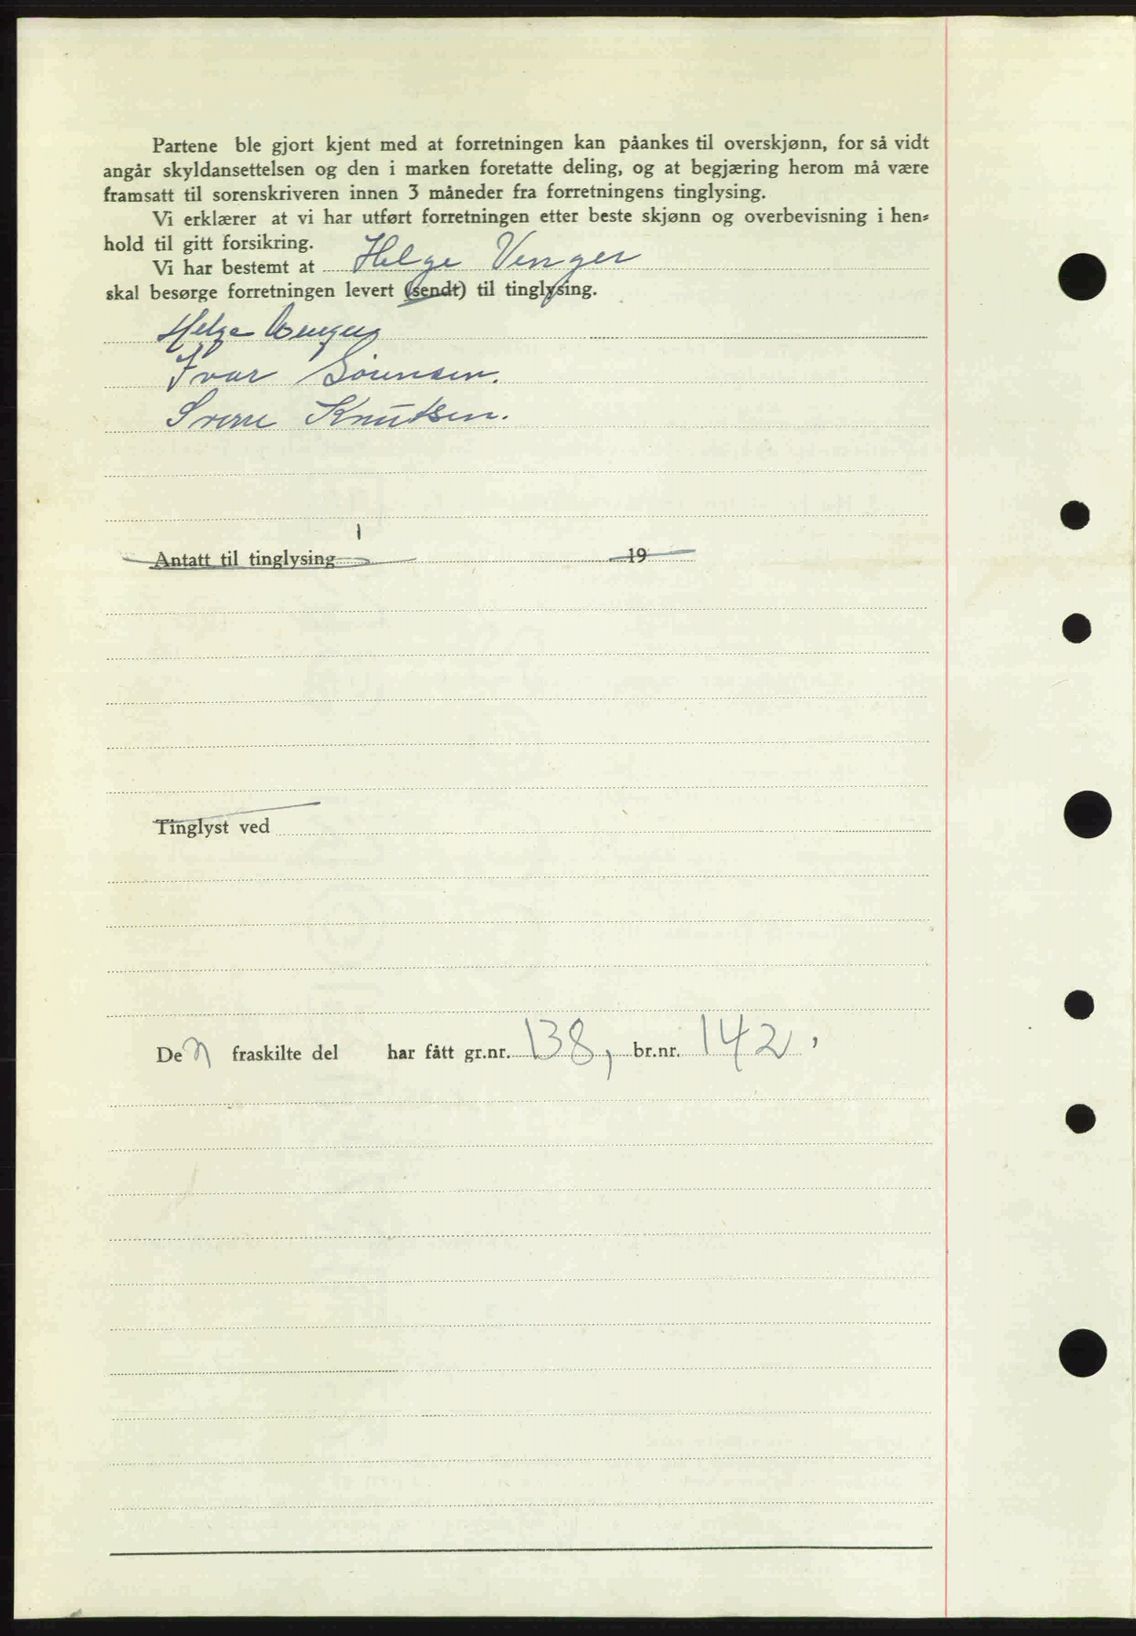 Partene ble gjort kjent med at forretningen kan påankes til overskjønn, for så vidt
angår skyldansettelsen og den i marken foretatte deling, og at begjæring herom må være
framsatt til sorenskriveren innen 3 måneder fra forretningens tinglysing.
Vi erklærer at vi har utført forretningen etter beste skjønn og overbevisning i hen-
hold til gitt forsikring.
Vi har bestemt at Helge Venger
skal besørge forretningen levert (sendt) til tinglysing.
Helge Venger
Ivar Sørensen.
Sverre Knutsen.
Antatt til tinglysing 19
Tinglyst ved
Den fraskilte del har fått gr.nr. 138, br.nr. 142.